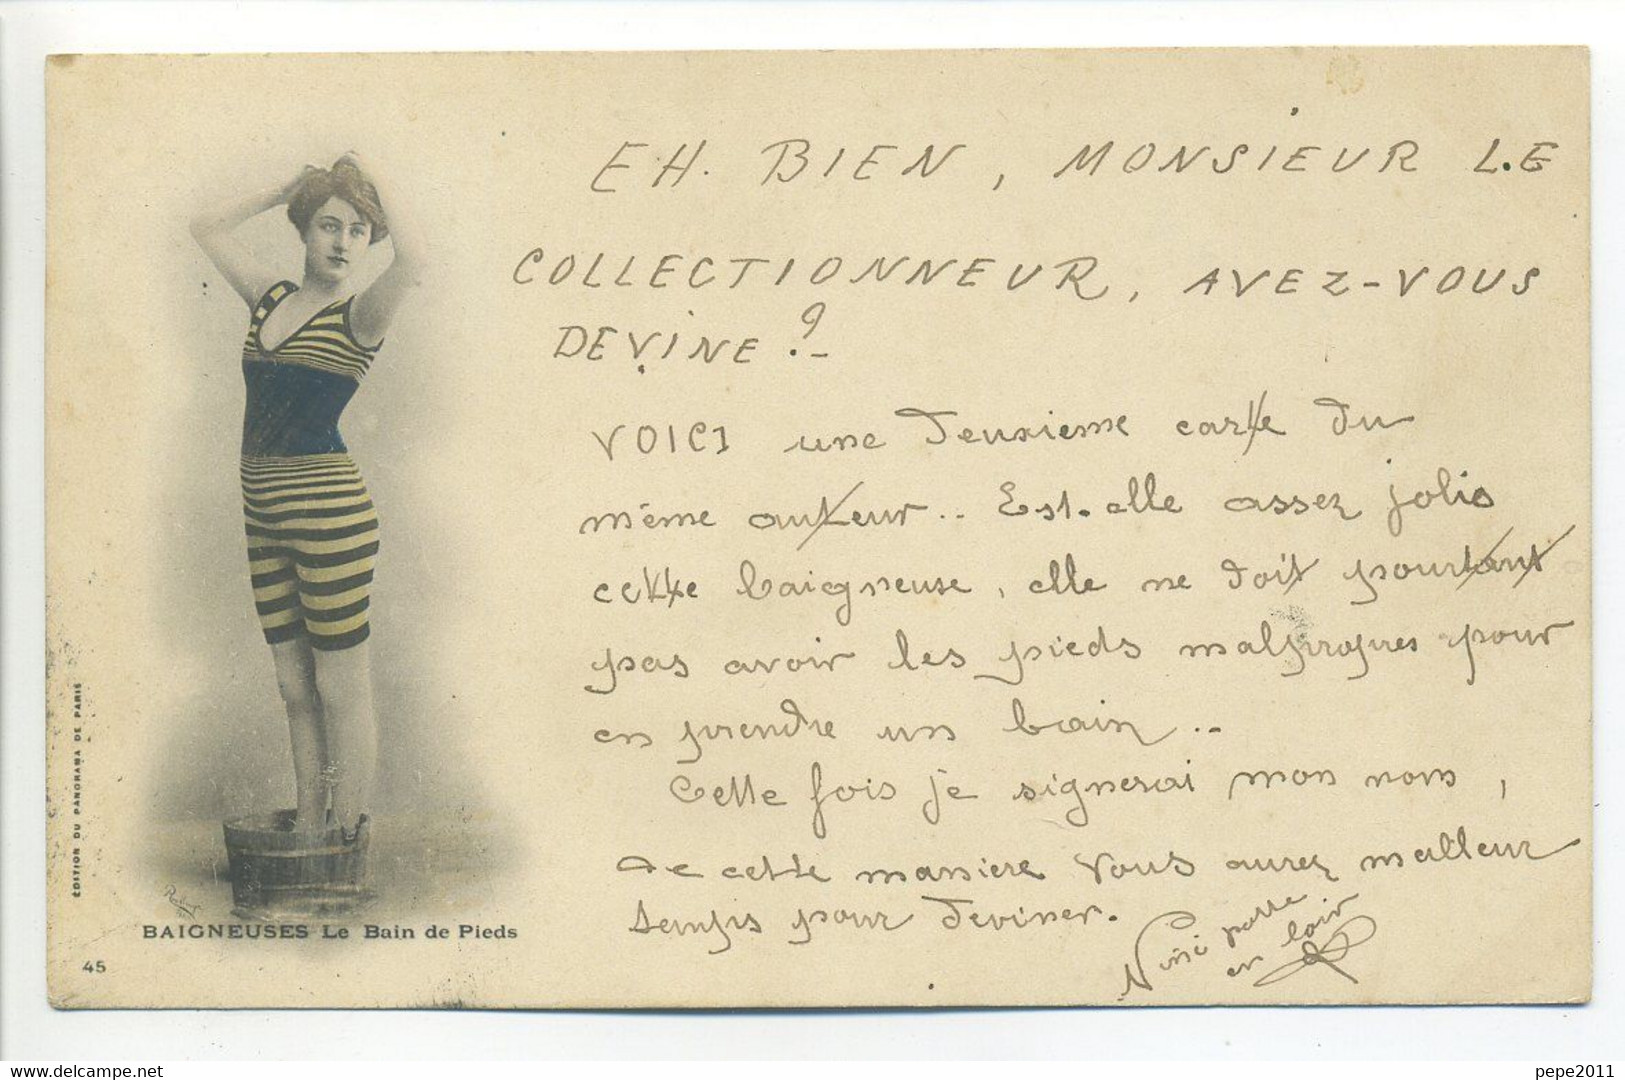 EH. BIEN, MONSIEUR LE
COLLECTIONNEUR, AVEZ-VOUS
DEVINE ?-
VOICI une deuxième carte du
même auteur.. Est-elle assez jolie
cette baigneuse, elle ne doit pourtant
pas avoir les pieds malpropres pour
en prendre un bain..
Cette fois je signerai mon nom,
de cette manière vous aurez meilleur
temps pour deviner.
Nini patte
en l'air
ÉDITION DU PANORAMA DE PARIS
BAIGNEUSES Le Bain de Pieds
45
Delcampe.com
pepe2011